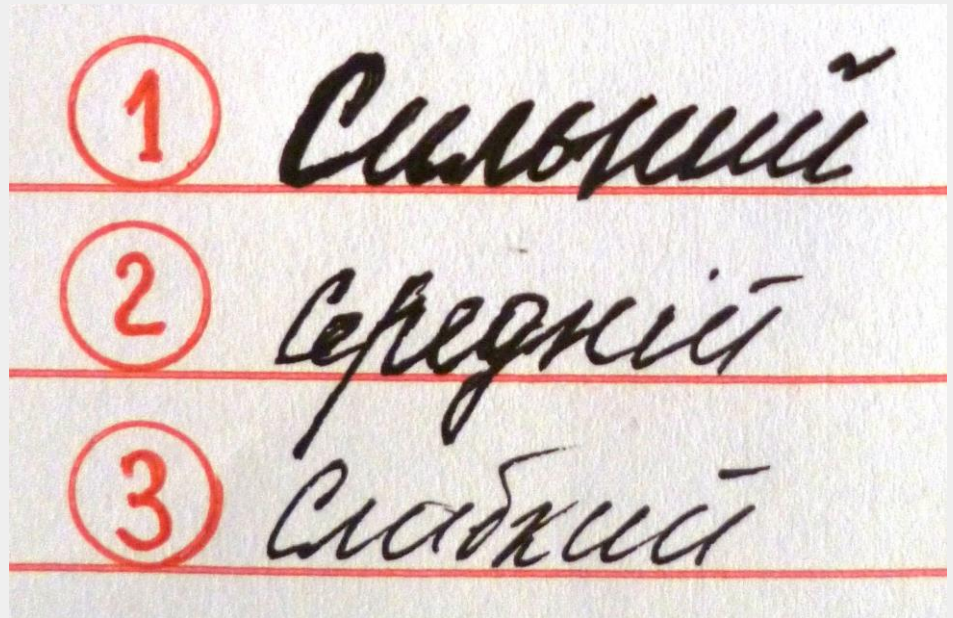 1 Сильний
2 середній
3 слабкий